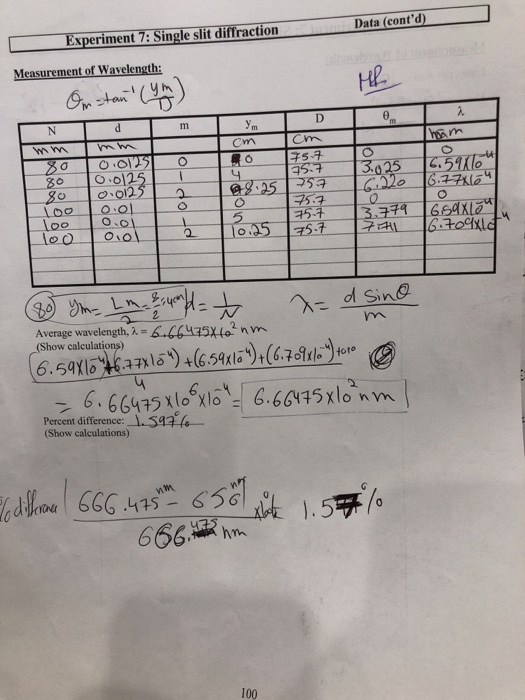 Experiment 7: Single slit diffraction
Data (cont'd)
Measurement of Wavelength:
θm = tan⁻¹ (ym/D)
N d m ym D θm λ
mm mm cm cm
80 0.0125 0 0 75.7 0 0
80 0.0125 1 4 75.7 3.025 6.59x10⁻⁴
80 0.0125 2 8.25 75.7 6.220 6.77x10⁻⁴
100 0.01 0 0 75.7 0 0
100 0.01 1 5 75.7 3.779 6.59x10⁻⁴
100 0.01 2 10.25 75.7 6.709x10⁻⁴
80 ym = Lm/2 = 8/2 = 4cm d = 1/N λ = d sinθ / m
Average wavelength, λ = 6.66475x10² nm
(Show calculations)
(6.59x10⁻⁴)+(6.77x10⁻⁴)+(6.59x10⁻⁴)+(6.709x10⁻⁴)
4
= 6.66475x10⁶x10⁻⁴ = 6.66475x10² nm
Percent difference: 1.597%
(Show calculations)
% difference | 666.475 nm - 656 nm
656 nm
100